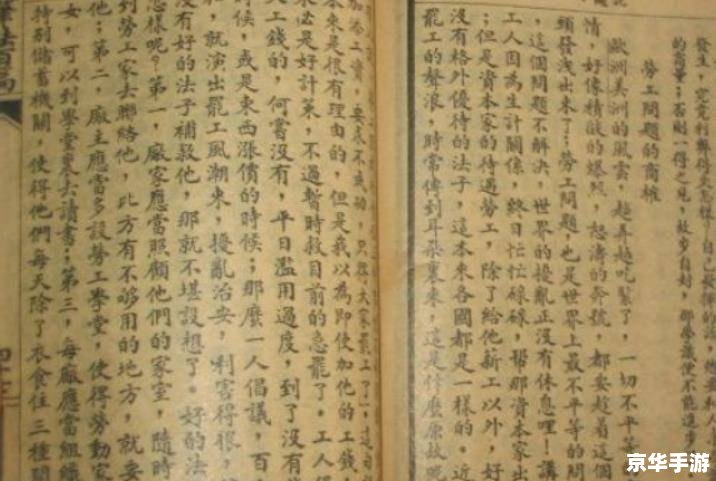 發生，究竟利弊得失怎樣？自己發揮
的商量；否則一得之見，故步自封，那便不能進步
勞工問題的商榷
歐洲美洲的風雲，越弄越吃緊了，一切不平等
情，好像積的爆烈，怒濤的奔號，都要趁着這個
頭發洩出來了；勞工問題，也是世界上最不平等的問
，這個問題不解決，世界的擾亂正沒有休息哩！講
工人因為生計關係，終日忙忙碌碌，幫那資本家出
；但是資本家的待遇勞工，除了給他薪工以外，好
沒有格外優待的法子，這本來各國都是一樣的。近
罷工的聲浪，時常傳到耳朵裏來，這是什麼原故呢
加添工資，要求不成功，只好大家罷工了
本來是很有理由的，但是我以為即使加他的工錢，
未必是好計策，不過暫時救目前的急罷了。工人
工錢的，何嘗沒有，平日濫用過度，到了沒有
時候，或是東西漲價的時候；那麼一人倡議，百
和，就演出罷工風潮來，擾亂治安，利害得很，
沒有好的法子補救他，那就不堪設想了。好的法
怎樣呢？第一，廠家應當照顧他們的家室，隨時
到勞工家去聯絡他，比方有不够用的地方，就要
他；第二，廠主應當多設勞工學堂，使得勞動家
女，可以到學堂裏去讀書；第三，每廠應當組織
特別儲蓄機關，使得他們每天除了衣食住三種開
京华手游